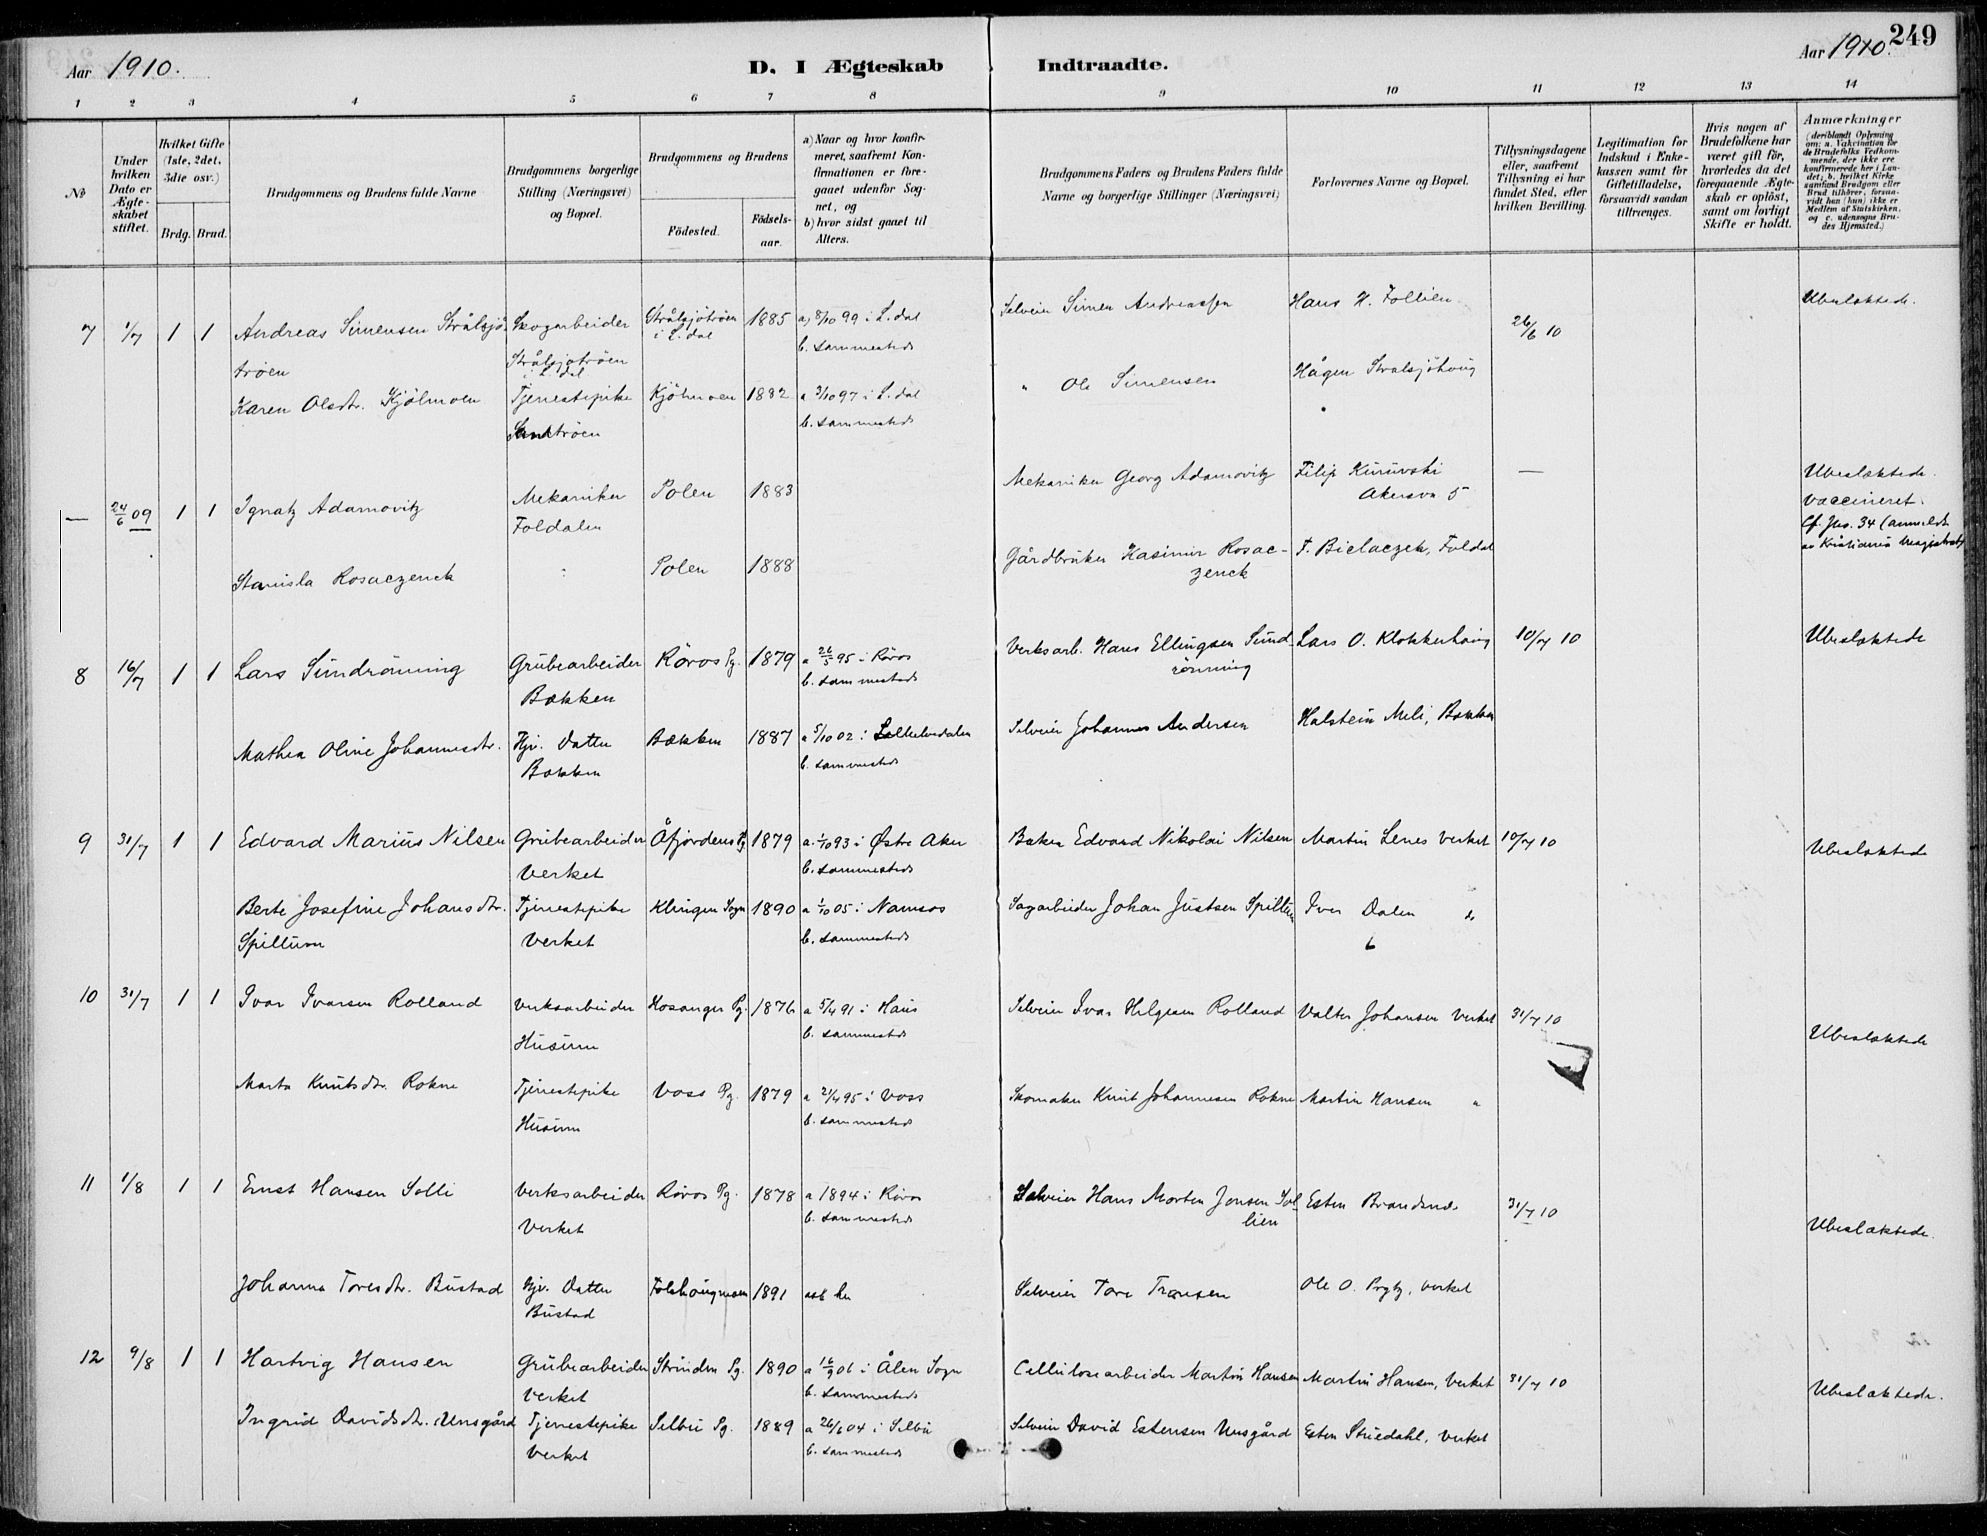 249
Aar 1910.
D. I Ægteskab Indtraadte.
Aar 1910.
1 2 3 4 5 6 7 8 9 10 11 12 13 14
№
Under hvilken Dato er Ægteskabet stiftet.
Hvilket Gifte (1ste, 2det, 3die osv.)
Brdg. Brud.
Brudgommens og Brudens fulde Navne
Brudgommens borgerlige Stilling (Næringsvei) og Bopæl.
Brudgommens og Brudens
Fødested.
Fødsels-aar.
a) Naar og hvor konfirmeret, saafremt Konfirmationen er foregaaet udenfor Sognet, og
b) hvor sidst gaaet til Alters.
Brudgommens Faders og Brudens Faders fulde Navne og borgerlige Stillinger (Næringsvei)
Forlovernes Navne og Bopæl.
Tillysningsdagene eller, saafremt Tillysning ei har fundet Sted, efter hvilken Bevilling.
Legitimation for Indskud i Enkekassen samt for Giftetilladelse, forsaavidt saadan tiltrænges.
Hvis nogen af Brudefolkene har været gift før, hvorledes da det foregaaende Ægteskab er opløst, samt om lovligt Skifte er holdt.
Anmærkninger
(deriblandt Oplysning om: a. Vakcination for de Brudefolks Vedkommende, der ikke ere konfirmerede her i Landet; b. hvilket Kirkesamfund Brudgom eller Brud tilhører, forsaavidt han (hun) ikke er Medlem af Statskirken, og c. udensogns Brudes Hjemsted.)
7 1/7 1 1 Andreas Simensen Strålsjö- Skogarbeider Strålsjötröen 1885 a) 8/10 99 i L.dal Selveier Simen Andreassen Hans H. Follien 26/6 10 Ubeslæktede.
tröen Strålsjotröen i L.dal i L.dal b. sammesteds
Karen Olsdtr. Kjölmoen Tjenestepike Kjölmoen 1882 a 3/10 97 i L.dal " Ole Simensen Hågen Stralsjöhoug
b. sammesteds
— 24/6 09 1 1 Ignatz Adamovitz Mekaniker Polen 1883 Mekaniker Georg Adamovitz Filip Kuruvski — Ubeslæktede.
Foldalen Akersvn 5 Vaccineret.
Cf. Jno. 34 (anmeldt av Kristiania Magistrat)
Stanisla Rosaczenck Polen 1888 Gårdbruker Kasimir Rosac- F. Bielaczek, Foldal
zenck
8 16/7 1 1 Lars Sundrönning Grubearbeider Röros Pg. 1879 a 26/5 95 i Röros Verksarb. Hans Ellingsen Sund- Lars O. Klokkerhoug 10/7 10 Ubeslæktede
Bækken b. sammesteds rönning
Mathea Oline Johannesdtr. Hjv. Datter Bækken 1887 a 5/10 02 i Lillelvedalen Selveier Johannes Andersen Halstein Meli, Bækken
Bækken b. sammesteds
9 31/7 1 1 Edvard Marius Nilsen Grubearbeider Åfjordens Pg 1879 a. 1/10 93 i Østre Aker Baker Edvard Nikolai Nilsen Martin Lenes Verket 10/7 10 Ubeslæktede
Verket b. sammesteds
Berte Josefine Johansdtr. Tjenestepike Klingen Sogn 1890 a 1/10 05 i Namsos Sagarbeider Johan Justsen Spillum Iver Dalen do
Spillum Verket b. sammesteds
10 31/7 1 1 Ivar Ivarsen Rolland Verksarbeider Hosanger Pg. 1876 a 5/4 91 i Haus Selveier Ivar Helgesen Rolland Valter Johansen Verket 31/7 10 Ubeslæktede
Husum b. sammesteds
Marta Knutsdtr. Rokne Tjenestepike Voss Pg. 1879 a 21/4 95 i Voss Skomaker Knut Johannesen Rokne Martin Hansen "
Husum b. sammesteds
11 1/8 1 1 Ernst Hansen Solli Verksarbeider Röros Pg. 1878 a 1894 i Röros Selveier Hans Morten Jonsen Sol- Esten Brandsnes 31/7 10 Ubeslæktede.
Verket b. sammesteds lien
Johanna Toresdtr. Bustad Hjv. Datter Folshougmoen 1891 a og b her Selveier Tore Tronsen Ole O. Prytz, Verket
Bustad
12 9/8 1 1 Hartvig Hansen Grubearbeider Strinden Pg. 1890 a 16/9 06 i Ålen Sogn Cellulosearbeider Martin Hansen Martin Hansen, Verket 31/7 10 Ubeslæktede.
Verket b. sammesteds
Ingrid Davidsdtr. Unsgård Tjenestepike Selbu Pg. 1889 a 26/6 04 i Selbu Selveier David Estensen Unsgård Esten Stuedahl, Verket
Verket b. sammesteds